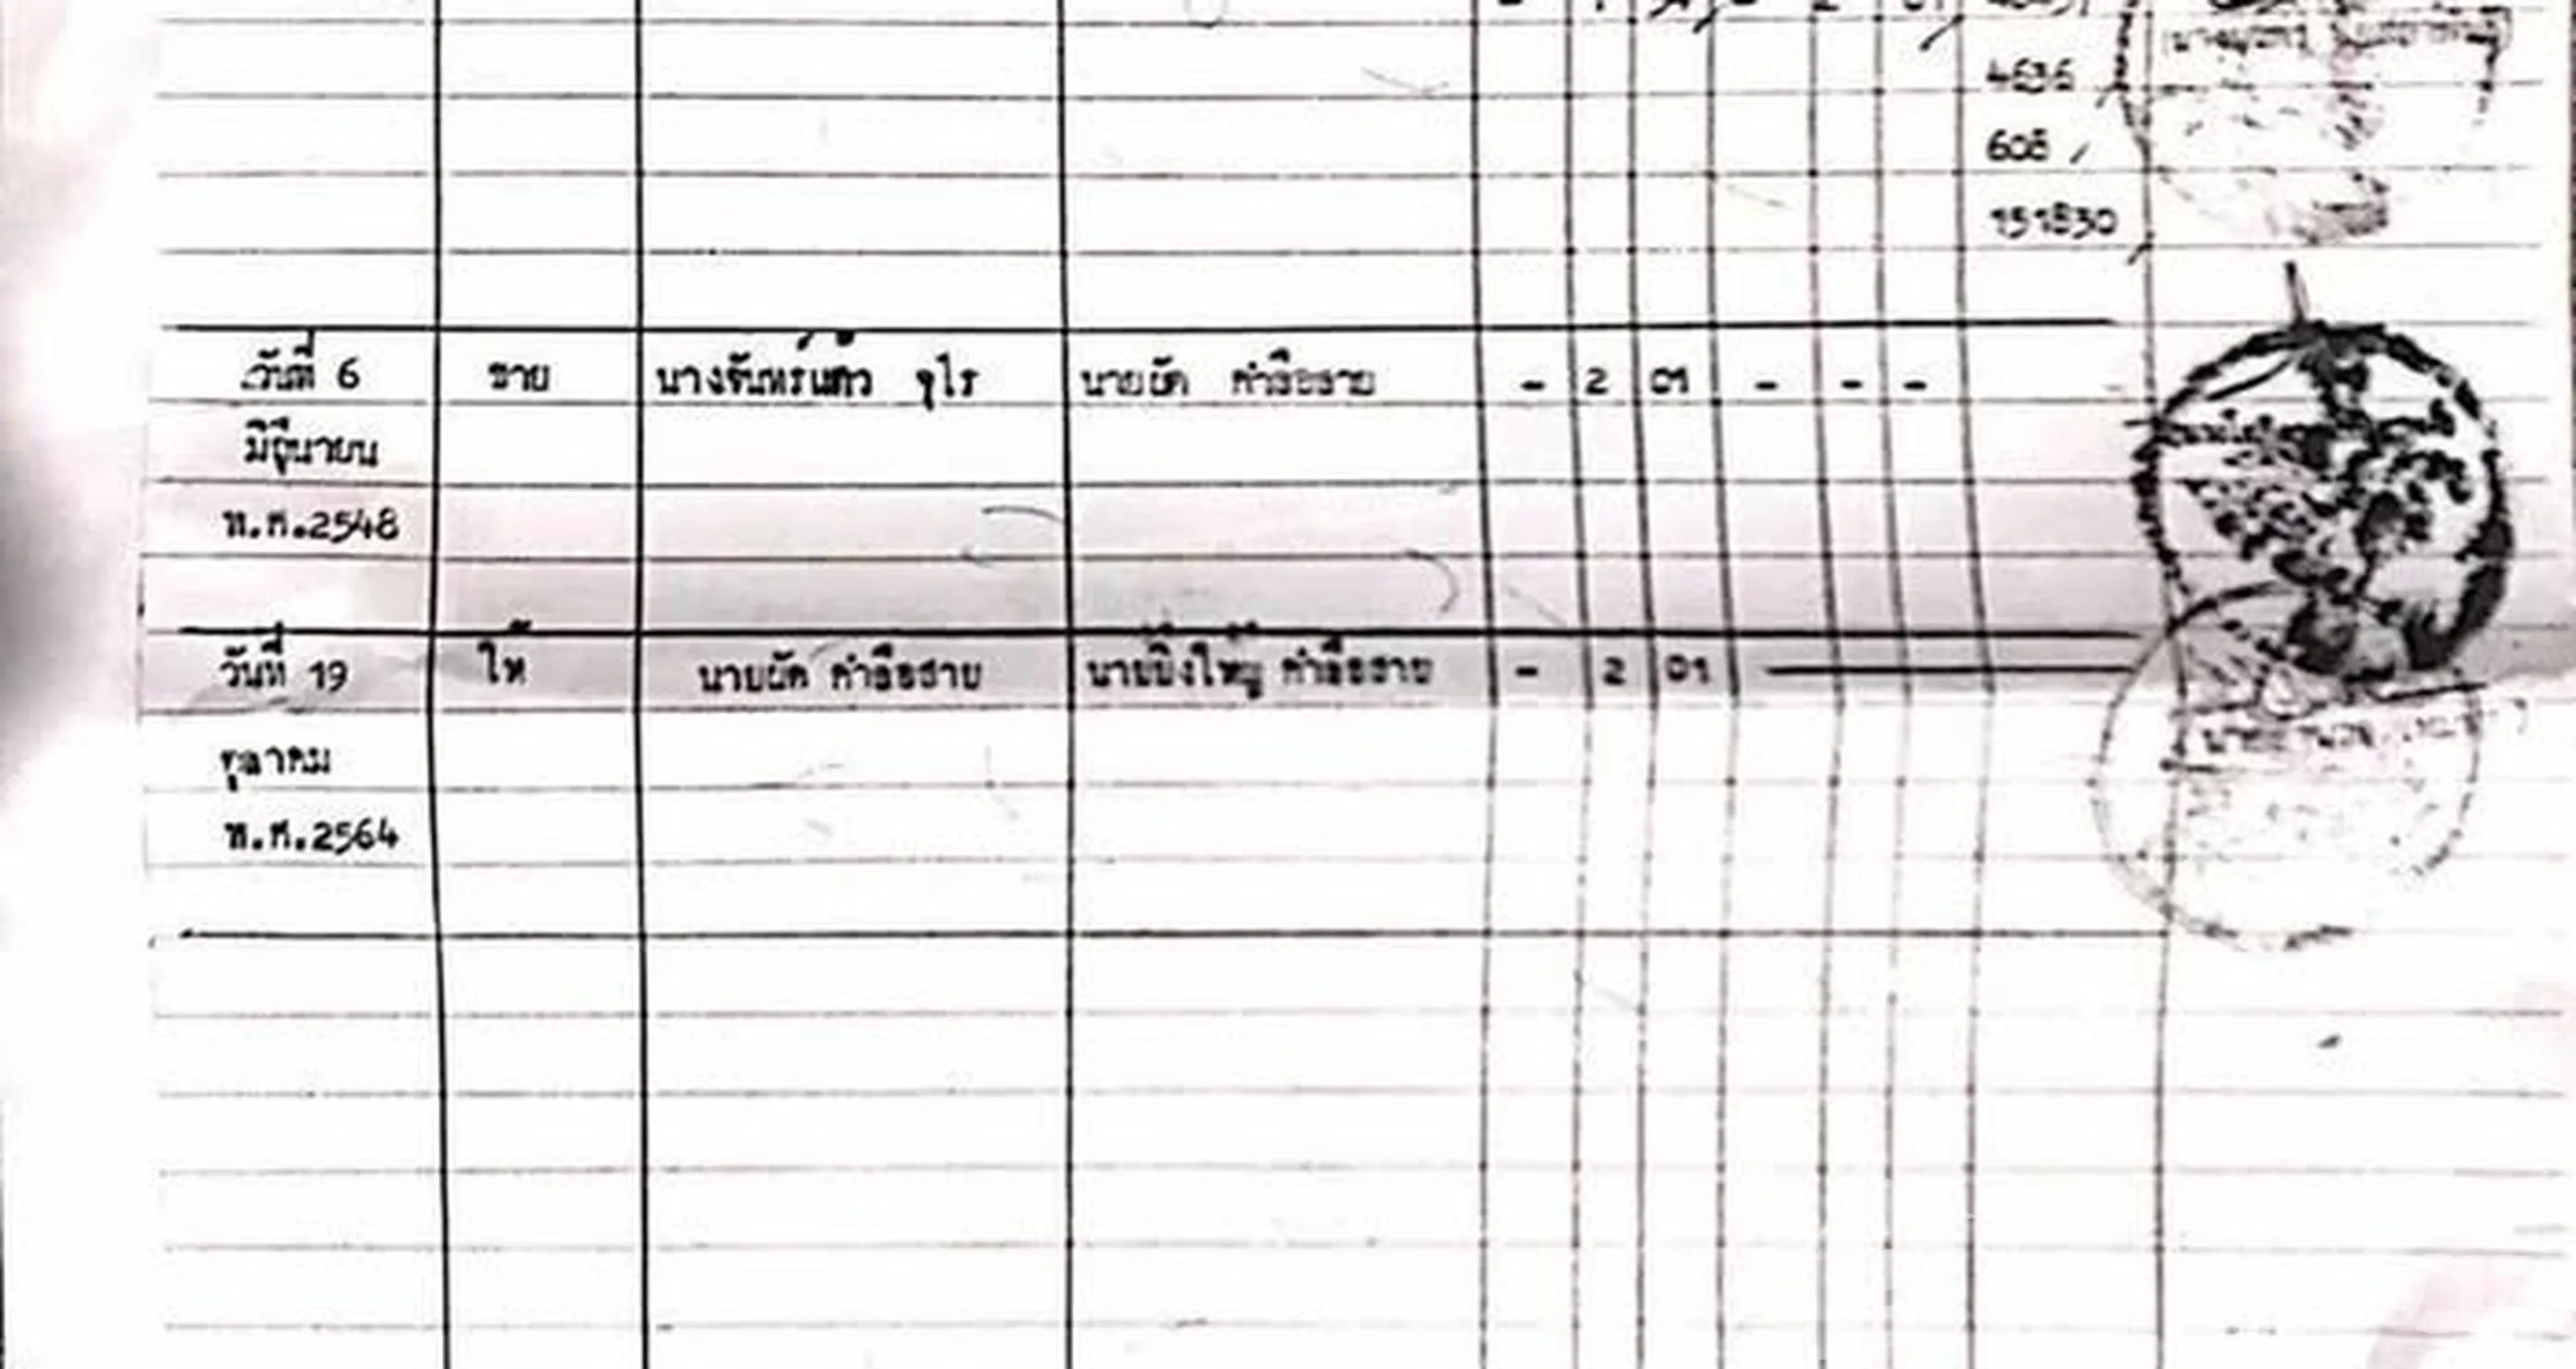 4636
608
151830
วันที่ 6 ขาย นางจันทร์แก้ว จุไร นายผัด คำลือสาย - 2 01 - - -
มิถุนายน
พ.ศ.2548
วันที่ 19 ให้ นายผัด คำลือสาย นายยิ่งใหญ่ คำลือสาย - 2 01
ตุลาคม
พ.ศ.2564